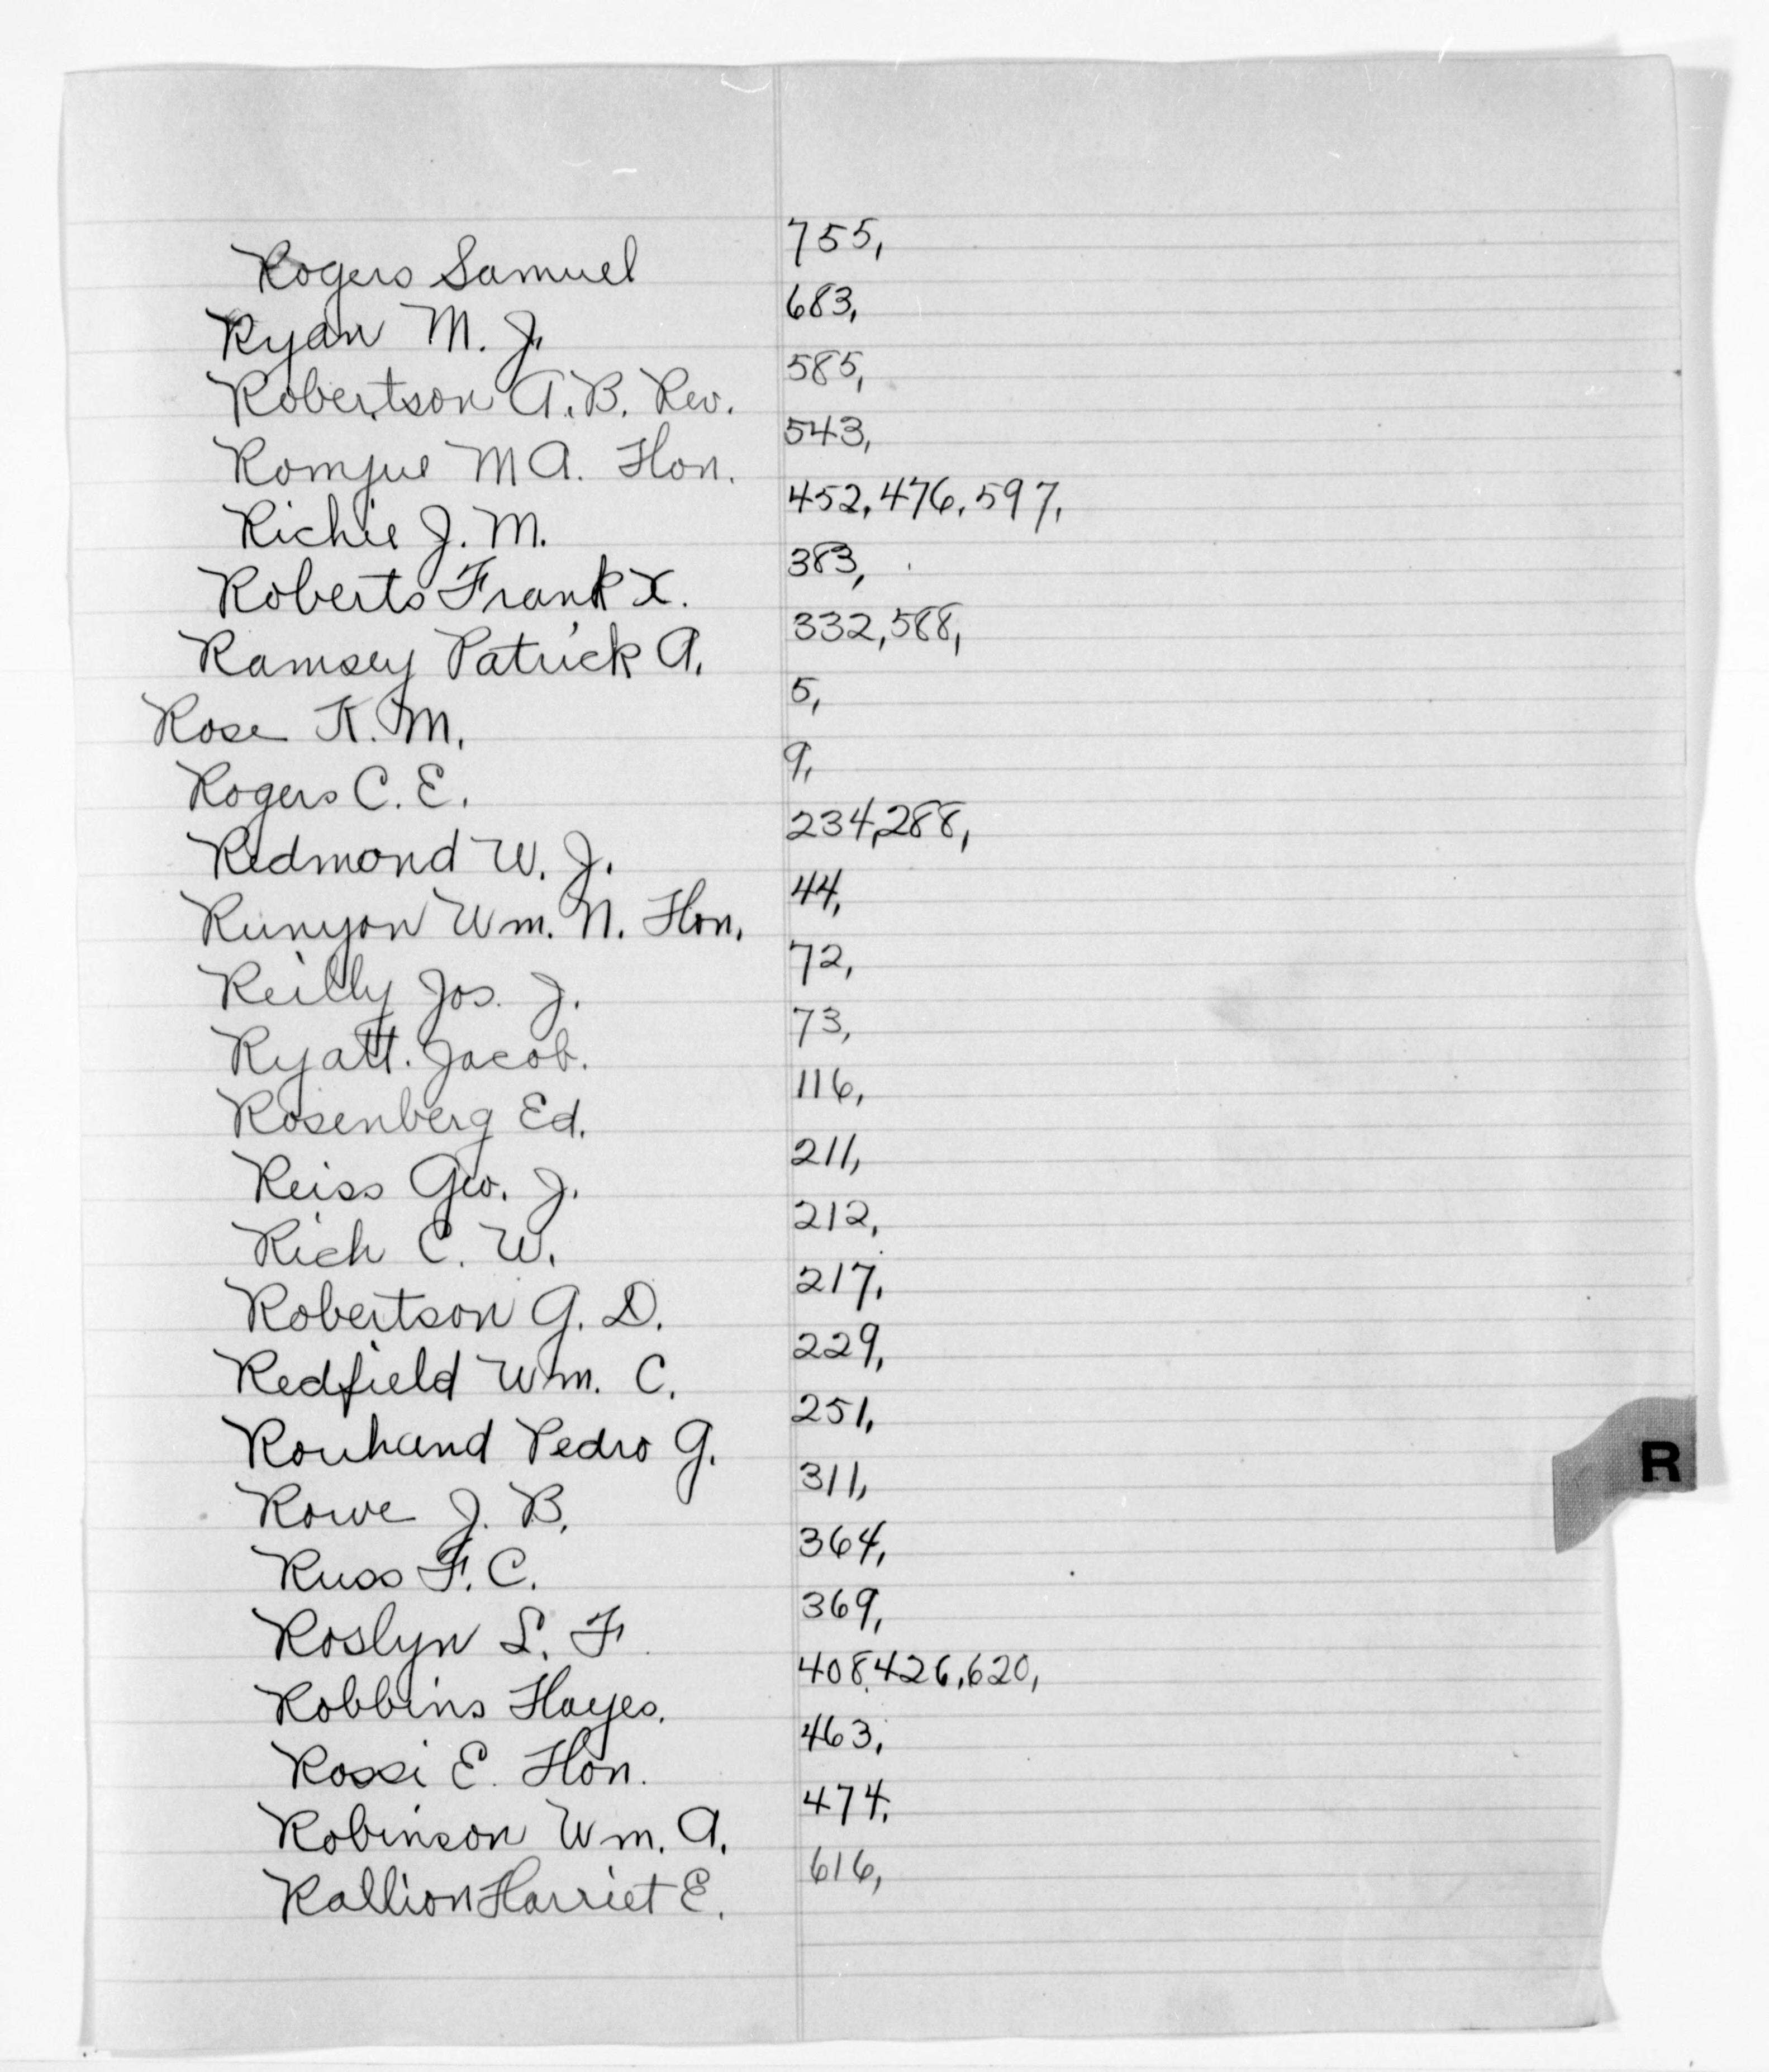 Rogers Samuel 755,
Ryan M. J. 683,
Robertson A. B. Rev. 585,
Romjue M A. Hon. 543,
Richie J. M. 452, 476, 597,
Roberts Frank X. 383,
Ramsey Patrick A. 332, 588,
Rose K. M. 5,
Rogers C. E. 9,
Redmond W. J. 234, 288,
Runyon Wm. N. Hon. 44,
Reilly Jos. J. 72,
Ryatt. Jacob. 73,
Rosenberg Ed. 116,
Reiss Geo. J. 211,
Rich C. W. 212,
Robertson G. D. 217,
Redfield Wm. C. 229,
Rouhand Pedro G. 251,
Rowe J. B. 311,
Russ F. C. 364,
Roslyn L. F 369,
Robbins Hayes. 408, 426, 620,
Rossi E. Hon. 463,
Robinson Wm. A. 474,
Rallion Harriet E. 616,
R